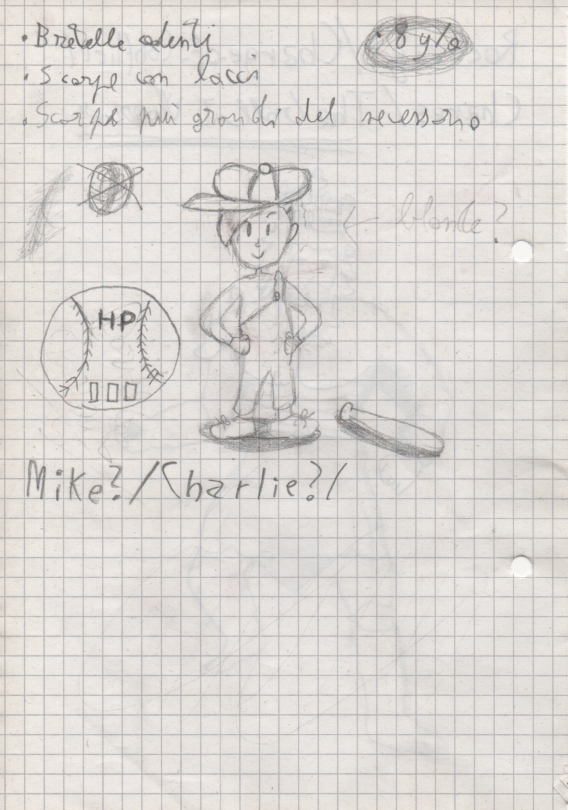 • Bretelle adenti
• 8 y/o
• Scarpe con lacci
• Scarpe più grandi del necessario
← blonde?
HP
Mike?/Charlie?/